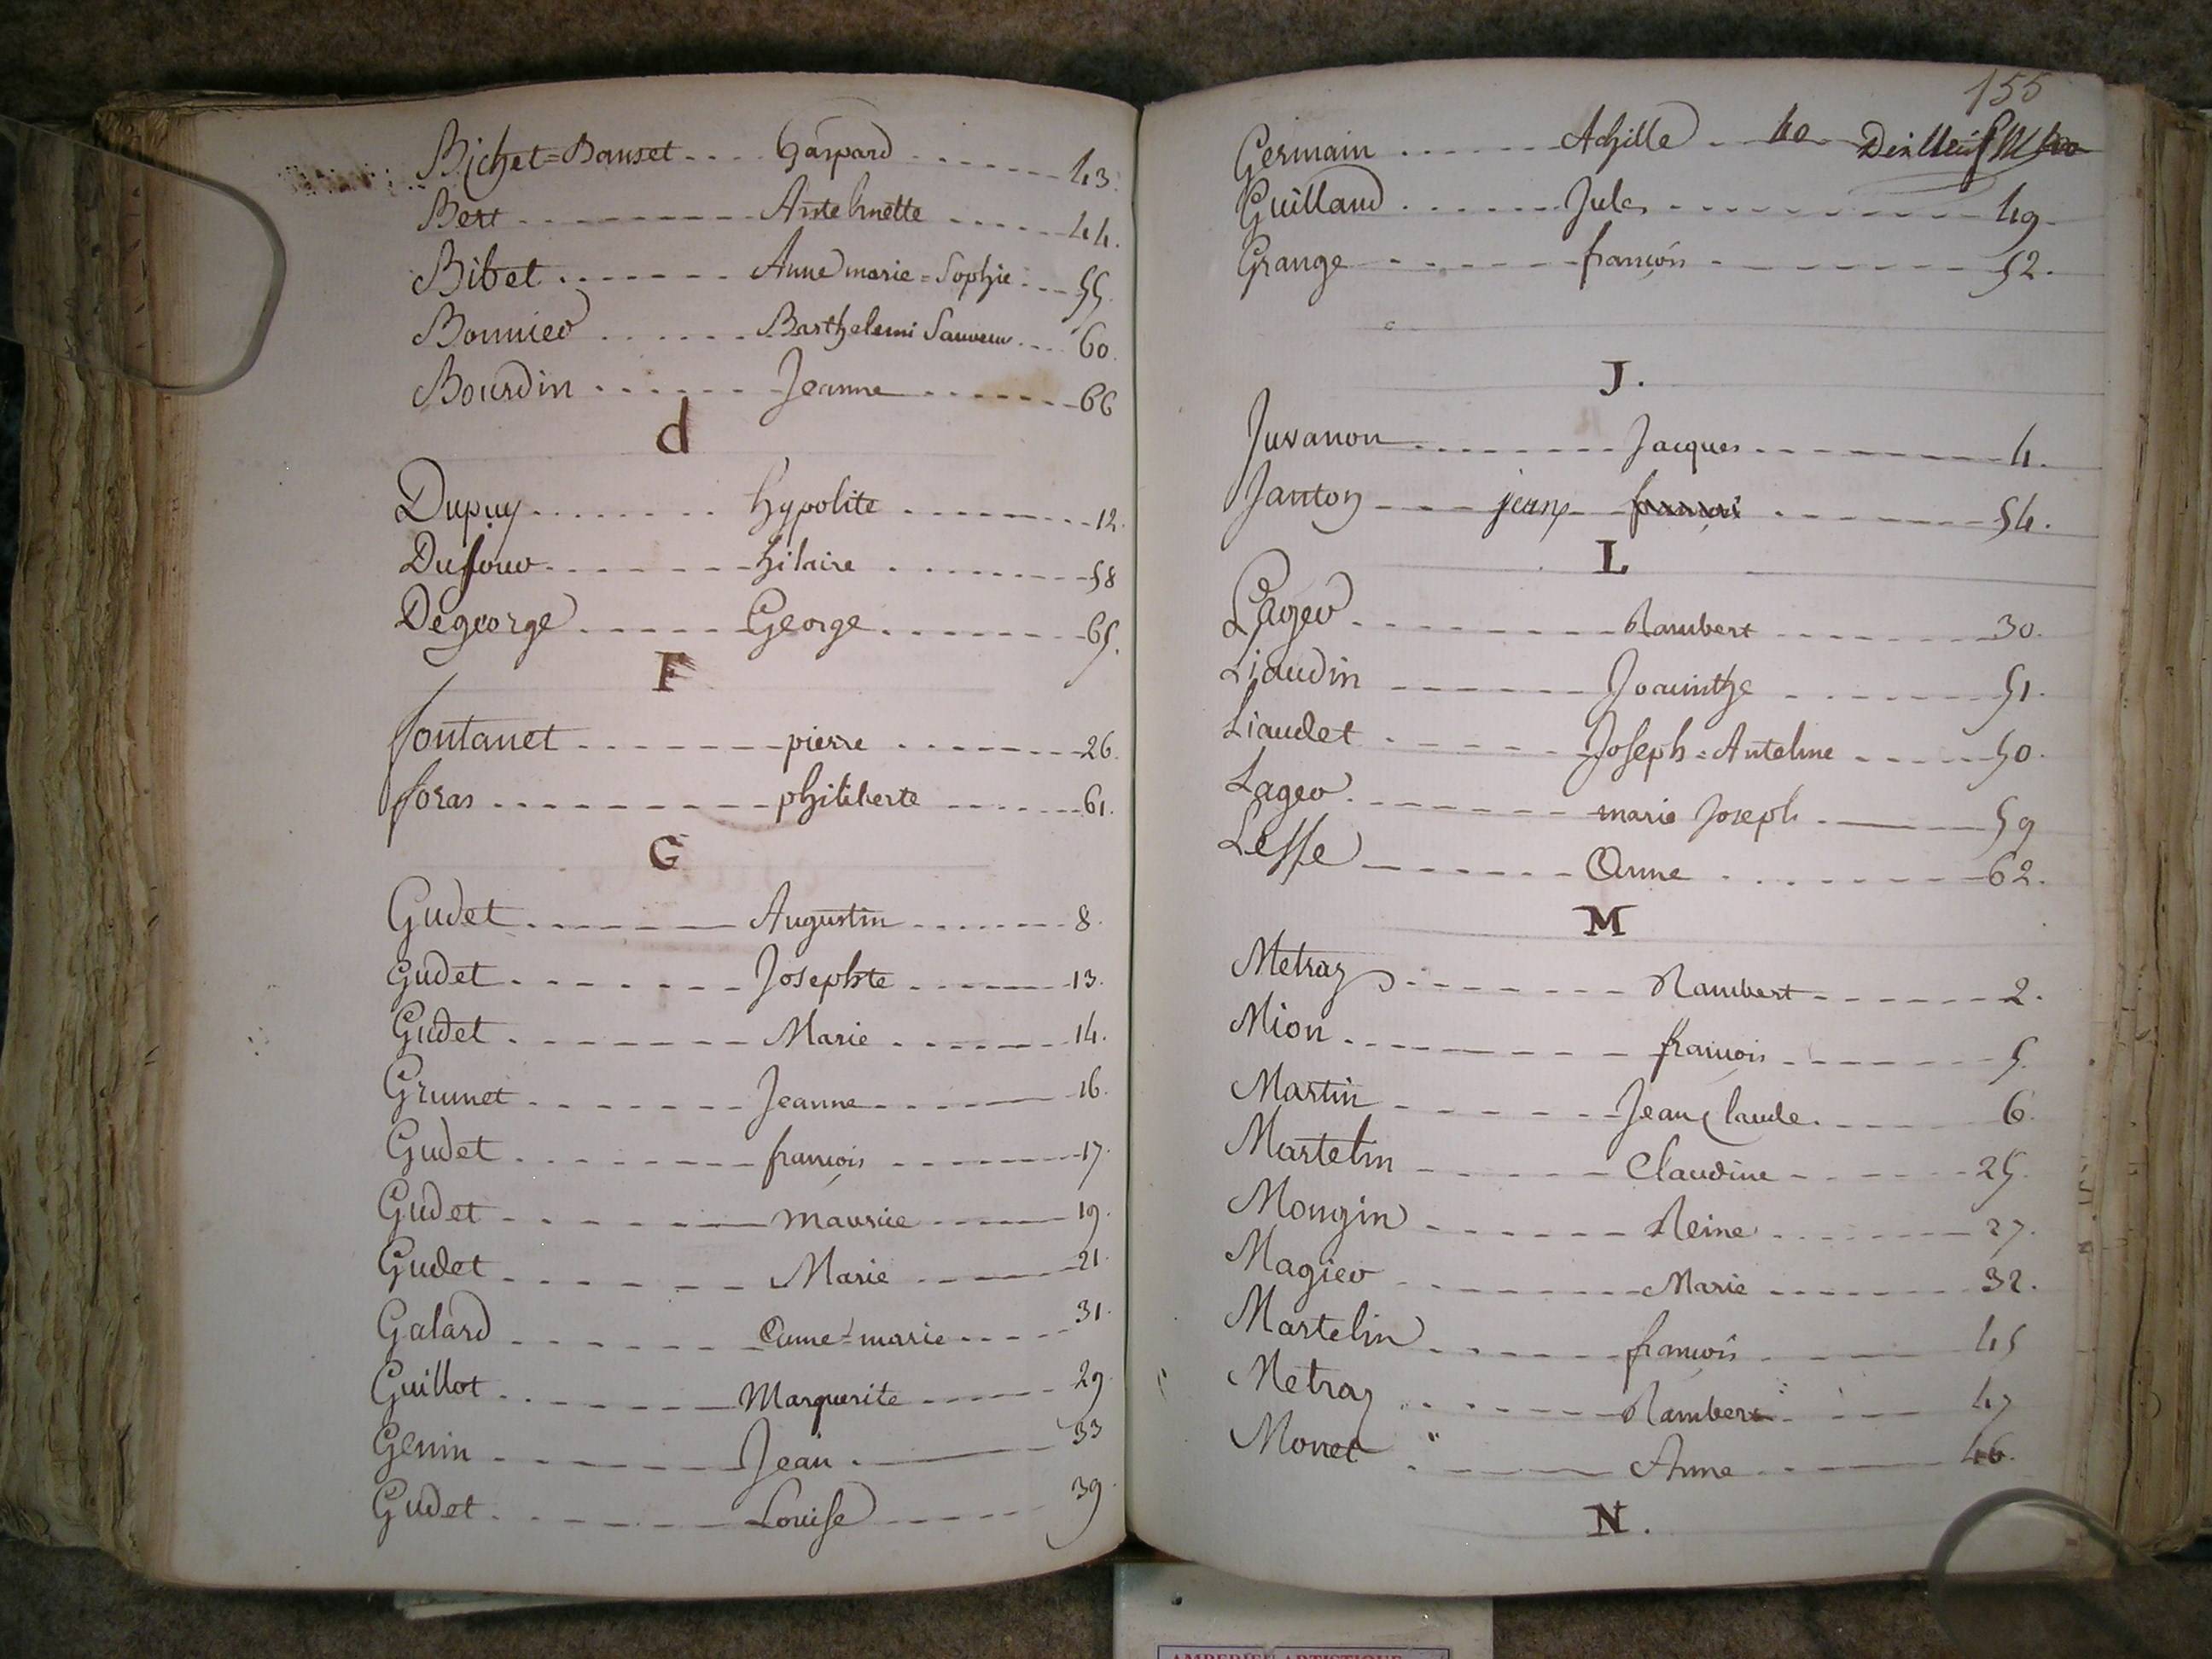 Bichet=Banset .... Gaspard ...... 43.
Bert ......... Anthelmette ..... 44.
Bibet ....... Anne marie=Sophie ... 55.
Bonnier ...... Barthelemi Sauveur ... 60.
Bourdin ...... Jeanne ....... 66
d
Dupuy ....... hypolite ....... 12.
Dufour ....... hilaire ....... 58
Degeorge ...... George ....... 65.
F
fontanet ....... pierre ....... 26.
foras ......... philiberte ..... 61.
G
Gudet ....... Augustin ....... 8.
Gudet ....... Josephte ...... 13.
Gudet ....... Marie ...... 14.
Grumet ....... Jeanne ..... 16.
Gudet ........ françois ...... 17.
Gudet ....... maurice ..... 19.
Gudet ...... Marie ..... 21.
Galard ...... Anne=marie .... 31.
Guillot ...... Marguerite ..... 29.
Genin ...... Jean ..... 33
Gudet ...... Louise ..... 39
155
Germain ...... Achille .. 40
Guilland ...... Jules ......... 49.
Grange ...... françois ....... 52.
J.
Juvanon ........ Jacques ........ 4.
Janton --- jean françois ....... 54.
L
Lager ........ Rambert ....... 30.
Liaudin ------ Joacinthe ...... 51.
Liaudet ..... Joseph=Antelme ..... 50.
Lager ....... marie Joseph .... 59
Lesse ------ Anne ........ 62.
M
Metraz ........ Rambert ...... 2.
Mion ........ françois ....... 5.
Martin ------ Jean Claude ..... 6.
Martelin ----- Claudine ..... 25.
Mongin ...... Reine ....... 27.
Magier ....... Marie ....... 32.
Martelin ...... françois ..... 45
Metraz ....... Rambert .... 47
Monet ..... Anne ..... 46.
N.
AMBERIEU ARTISTIQUE